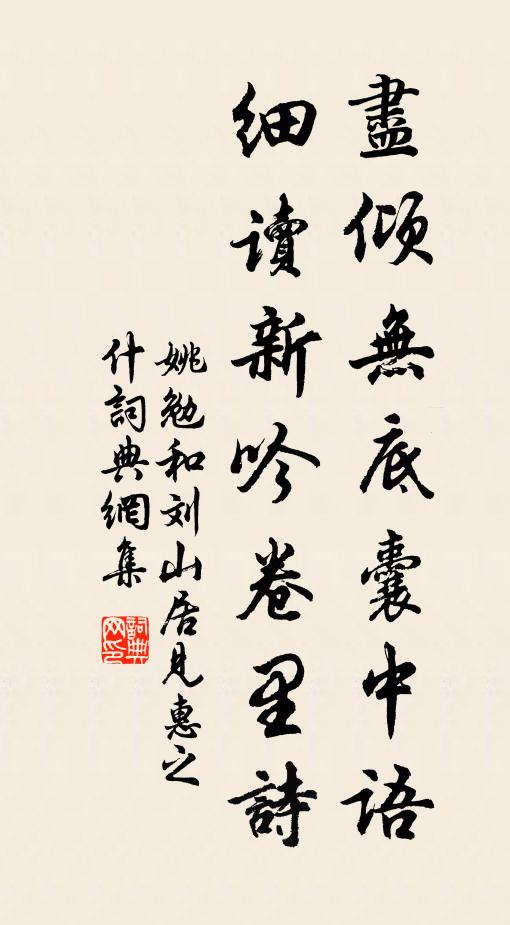 盡傾無底囊中語
細讀新吟卷里詩
姚勉和刘山居見惠之
什詞典網集
詞典網印